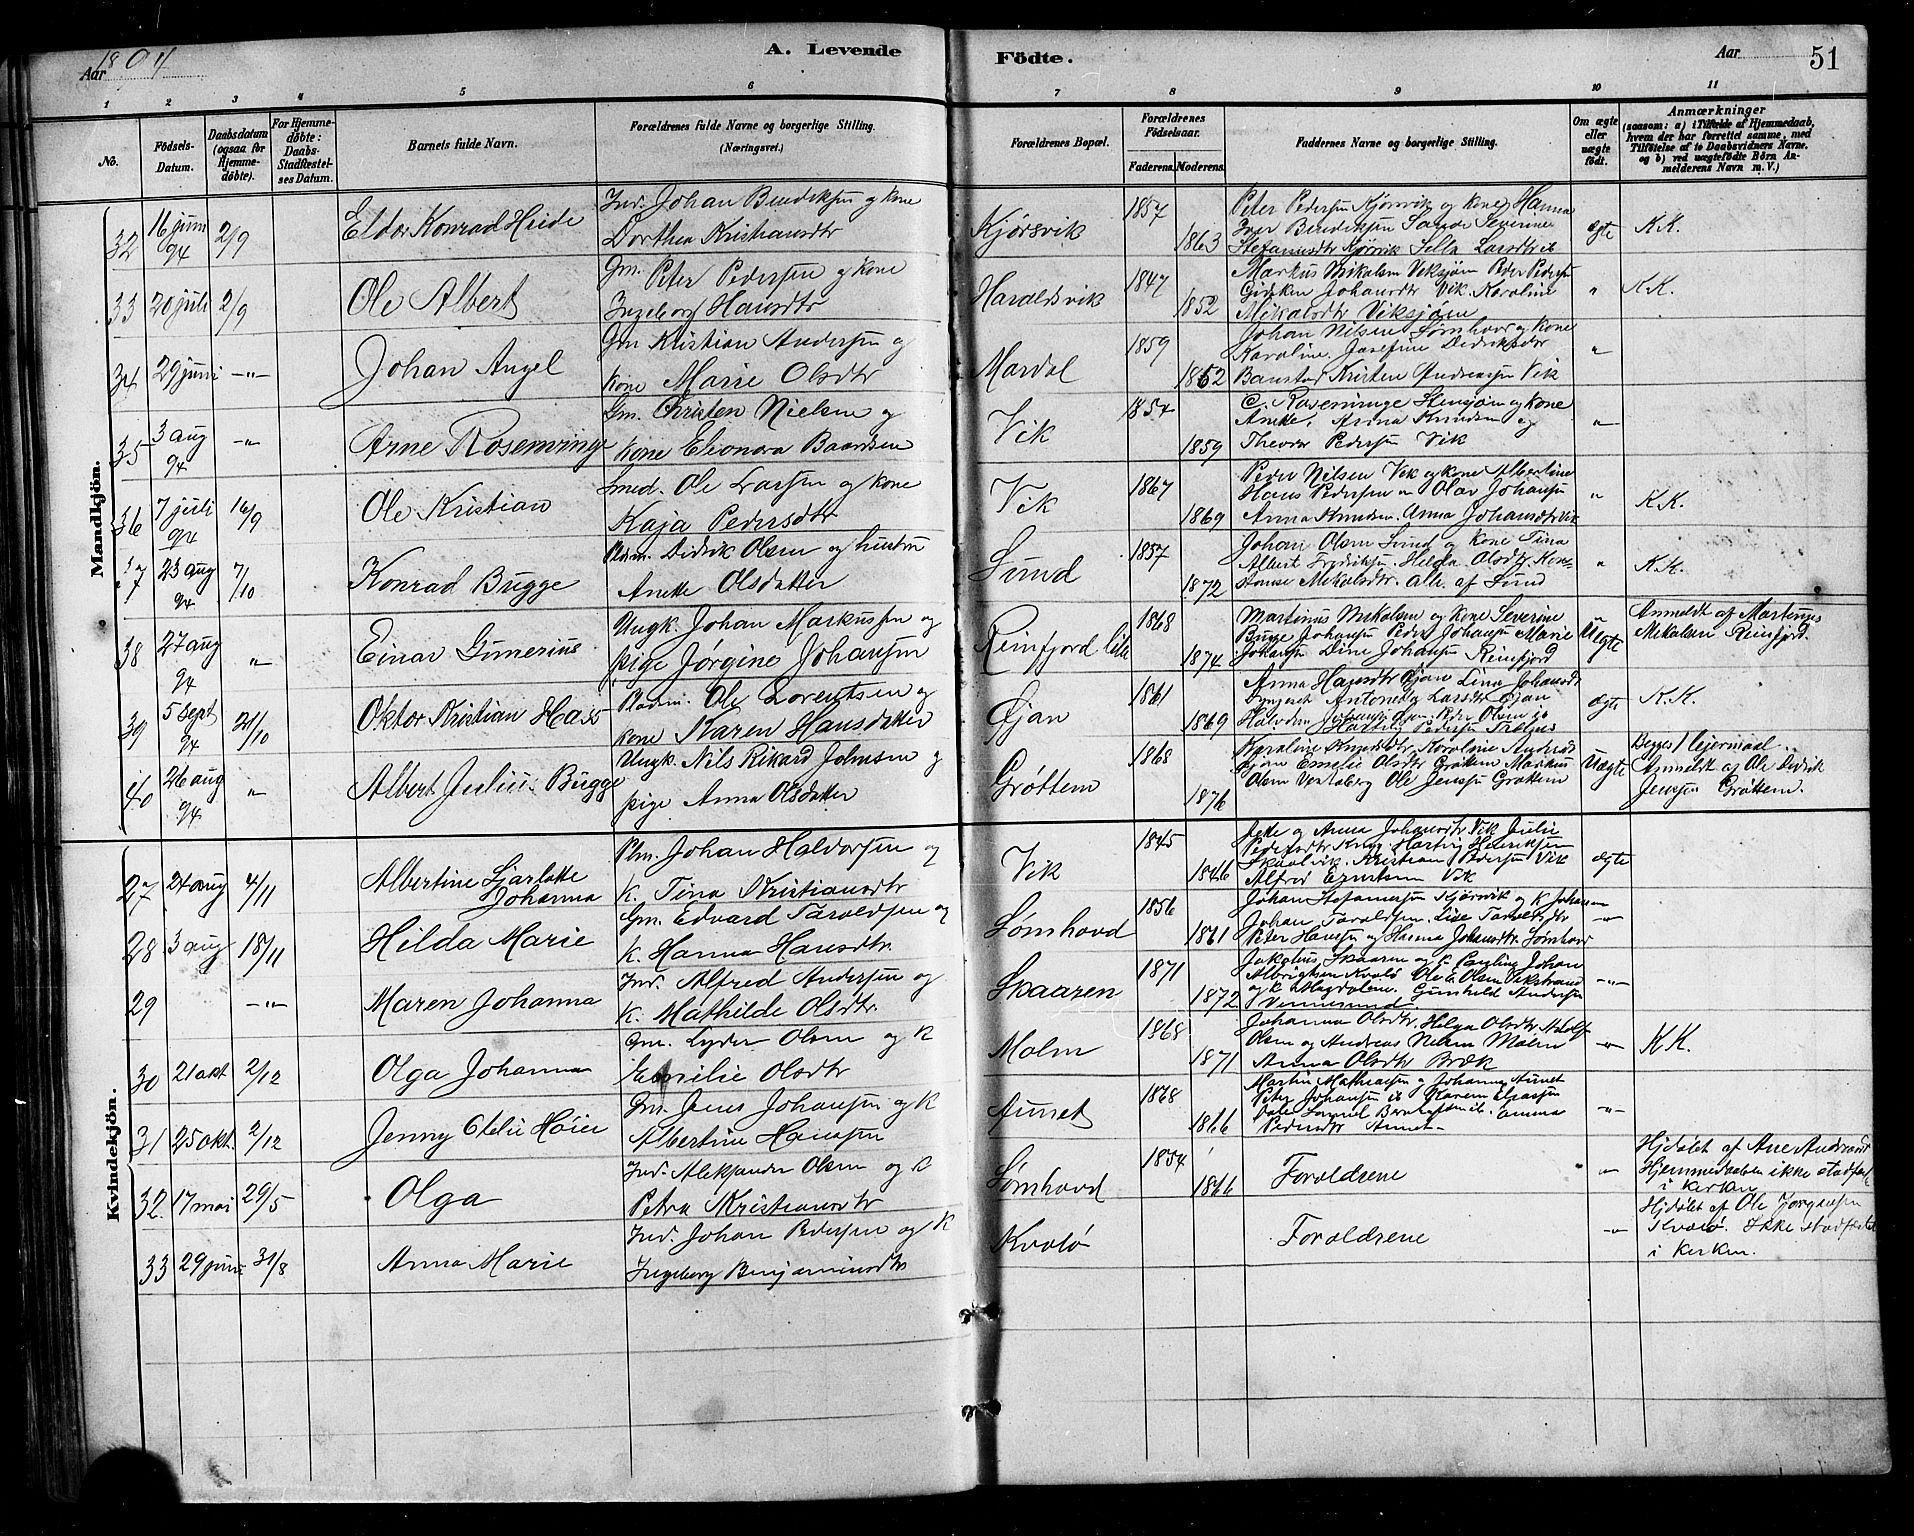 Aar 1894
A. Levende
Födte.
Aar
51
1 2 3 4 5 6 7 8 9 10 11
No.
Födsels-Datum.
Daabsdatum (ogsaa for Hjemme-döbte).
For Hjemme-döbte: Daabs-Stadfæstel-ses Datum.
Barnets fulde Navn.
Forældrenes fulde Navne og borgerlige Stilling. (Næringsvei.)
Forældrenes Bopæl.
Forældrenes Födselsaar.
Faderens.
Moderens.
Faddernes Navne og borgerlige Stilling.
Om ægte eller uægte födt.
Anmærkninger
(saasom: a) i Tilfælde af Hjemmedaab,
hvem der har forrettet samme, med
Tilföielse af to Daabsvidners Navne,
og b) ved uægtefödte Börn An-
melderens Navn m. V.)
Mandkjön.
32 16 juni 94 2/9 Eldor Konrad Heide Ind. Johan Bendiksen og kone
Dorthea Kristiansdtr Kjørsvik 1857 1863
Peter Pedersen Kjørsvik og kone Hanna
Iver Bendiksen Severine
Stefansdtr Kjørvik ægte K.K.
33 20 juli 2/9 Ole Albert Gm. Peter Pedersen og kone
Ingeborg Hansdtr Haraldsvik 1847 1852
Markus Mikalsen Viksjøen Peder Pedersen
Gidsken Johansdtr Vik Karoline
Mikalsdtr Viksjøen " K.K.
34 29 juni -"- Johan Angel Gm Kristian Andersen og
kone Marie Olsdtr Mardal 1859 1862
Johan Nilsen Sørnhovd og kone
Karoline. Josefine Didriksdtr
Kristen Andreassen Vik "
35 3 aug 94 -"- Arne Rosenvinge Gm. Christen Nielsen og
kone Eleonora Baardsen Vik 1854 1859
C. Rosenvinge Stensjøen og kone
Anette, Anna Knudsen og
Theodor Pedersen Vik "
36 7 juli 94 16/9 Ole Kristian Smed. Ole Larsen og kone
Kaja Pedersdtr Vik 1867 1869
Peder Nilsen Vik og kone Albertine
Hans Pedersen Olav Johansen
Anna Knudsen. Anna Johansdtr Vik " K.K.
37 23 aug 94 7/10 Konrad Bugge Didrik Olsen og hustru
Anette Olsdatter Sund 1857 1872
Johan Olsen Sund og kone Lina
Albert Fredriksen. Hilda Olsdtr Kon-
stanse Mikalsdtr. Alle af Sund " K.K.
38 27 aug 94 " Einar Gunerius Ungk. Johan Markussen og
pige Jørgine Johansen Reinfjord 1868 1874
Martinus Mikalsen og kone Severine
Johansen Peder Johansen Marie
Johansen Dine Johansen Reinfjord Uægte
Anmeldt af Martinus
Mikalsen Reinfjord.
39 5 sept 94 21/10 Oktor Kristian Hass Pladsm. Ole Lorentsen og
kone Karen Hansdatter Øjan 1861 1869
Anna Hansdtr Øjan Lina Johansdtr
Antonette Larsdtr Øjan
Peder Olsen
ægte K.K.
40 26 aug 94 " Albert Julius Bugge Ungk. Nils Rikard Johnsen og
pige Anna Olsdatter Grøttem 1868 1876
Karoline Knudsdtr Karoline Andersdtr
Øjan Emelie Olsdtr Grøttem Markus
Olsen Ole Jenssen Grøttem Uægte
Begges 1 leiermaal
Anmeldt af Ole Didrik
Jenssen Grøttem.
Kvindekjön.
27 24 aug 4/11 Albertine Sjarlotte
Johanna Plm. Johan Haldorsen og
k. Tina Kristiansdtr Vik 1845 1846
Jette og Anna Johansdtr Vik Julie
Pedersdtr Hartvig Henriksen
Skaalvik. Kristian Pedersen Vik
Alfred Vik ægte
28 3 aug 18/11 Hilda Marie Gm. Edvard Taroldsen og
k. Hanna Hansdtr. Sørnhovd 1856 1861
Johan Stefansen Kjørvik og k Johanna
Johan Taroldsen. Lise Taroldsdtr
Peter Hansen og Hanna Johansdtr. Sørnhovd -"-
29 -"- Maren Johanna Ind. Alfred Andersen og
k. Mathilde Olsdtr. Skaaren 1871 1872
Jakobus Skaaren og k. Pauline Johan
Albrigtsen Kvalø Ole E Olsen Vikstrand
og k Magdalene. Gunhild Andersen
Vennesund -"-
30 21 okt 2/12 Olga Johanna Gm. Lyder Olsen og k
Emilie Olsdtr Molm 1868 1871
Johanna Olsdtr. Helga Olsdtr Adolf
Olsen og Andreas Nilsen Molm
Anna Olsdtr Bræk -"- K.K.
31 25 okt. 2/12 Jenny Otelie Høier Gm. Jens Johansen og k
Albertine Hansen Aunet 1868 1866
Martin Mathiassen og Johanna Aunet
Peter Johansen Karen Eliassen
Pedersdtr Aunet -"-
32. 17 mai 29/5 Olga Ind. Aleksander Olsen og k
Petra Kristiansdtr Sørnhovd 1854 1866 Forældrene -"-
Hjdøbt af Ane Andreasdtr
Hjemmedaaben ikke stadfæstet
i kirken
33 29 juni 31/8 Anna Marie Ind. Johan Pedersen og k
Ingeborg Benjaminsdtr Kvalø Forældrene -"-
Hjdøbt af Ole Jørgensen
Kvalø. Ikke stadfæstet
i kirken.